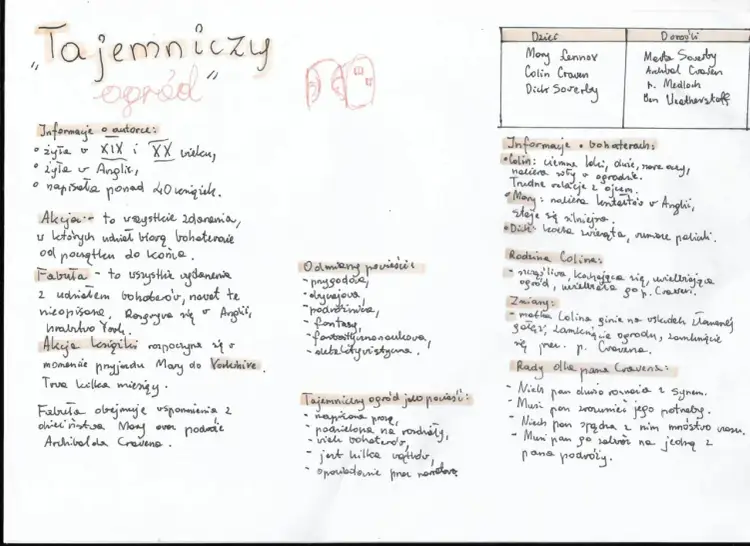 „Tajemniczy
ogród”
Informacje o autorce:
• żyła w XIX i XX wieku,
• żyła w Anglii,
• napisała ponad 40 książek.
Akcja - to wszystkie zdarzenia,
w których udział biorą bohaterowie
od początku do końca.
Fabuła - to wszystkie wydarzenia
z udziałem bohaterów, nawet te
nieopisane. Rozgrywa się w Anglii,
hrabstwo York.
Akcja książki rozpoczyna się w
momencie przyjazdu Mary do Yorkshire.
Trwa kilka miesięcy.
Fabuła obejmuje wspomnienia z
dzieciństwa Mary oraz podróże
Archibalda Cravena.
Odmiany powieści:
- przygodowa,
- obyczajowa,
- podróżnicza,
- fantasy,
- fantastycznonaukowa,
- detektywistyczna.
Tajemniczy ogród jako powieść:
- napisana prozą,
- podzielona na rozdziały,
- wielu bohaterów,
- jest kilka wątków,
- opowiadanie przez narratora.
Dzieci
Mary Lennox
Colin Craven
Dick Sowerby
Dorośli
Marta Sowerby
Archibald Craven
p. Medlock
Ben Weatherstaff
Informacje o bohaterach:
• Colin: ciemne loki, duże, szare oczy,
nabiera siły w ogrodzie.
Trudne relacje z ojcem.
• Mary: nabiera kształtów w Anglii,
staje się silniejsza.
• Dick: kocha zwierzęta, rumiane policzki.
Rodzina Colina:
- szczęśliwa, kochająca się, uwielbiająca
ogród, uwielbiała go p. Craven.
Zmiany:
- matka Colina ginie na skutek złamanej
gałęzi, zamknięcie ogrodu, zamknięcie
się przez p. Cravena.
Rady dla pana Cravena:
- Niech pan dużo rozmawia z synem.
- Musi pan zrozumieć jego potrzeby.
- Niech pan spędza z nim mnóstwo czasu.
- Musi pan go zabrać na jedną z
pana podróży.